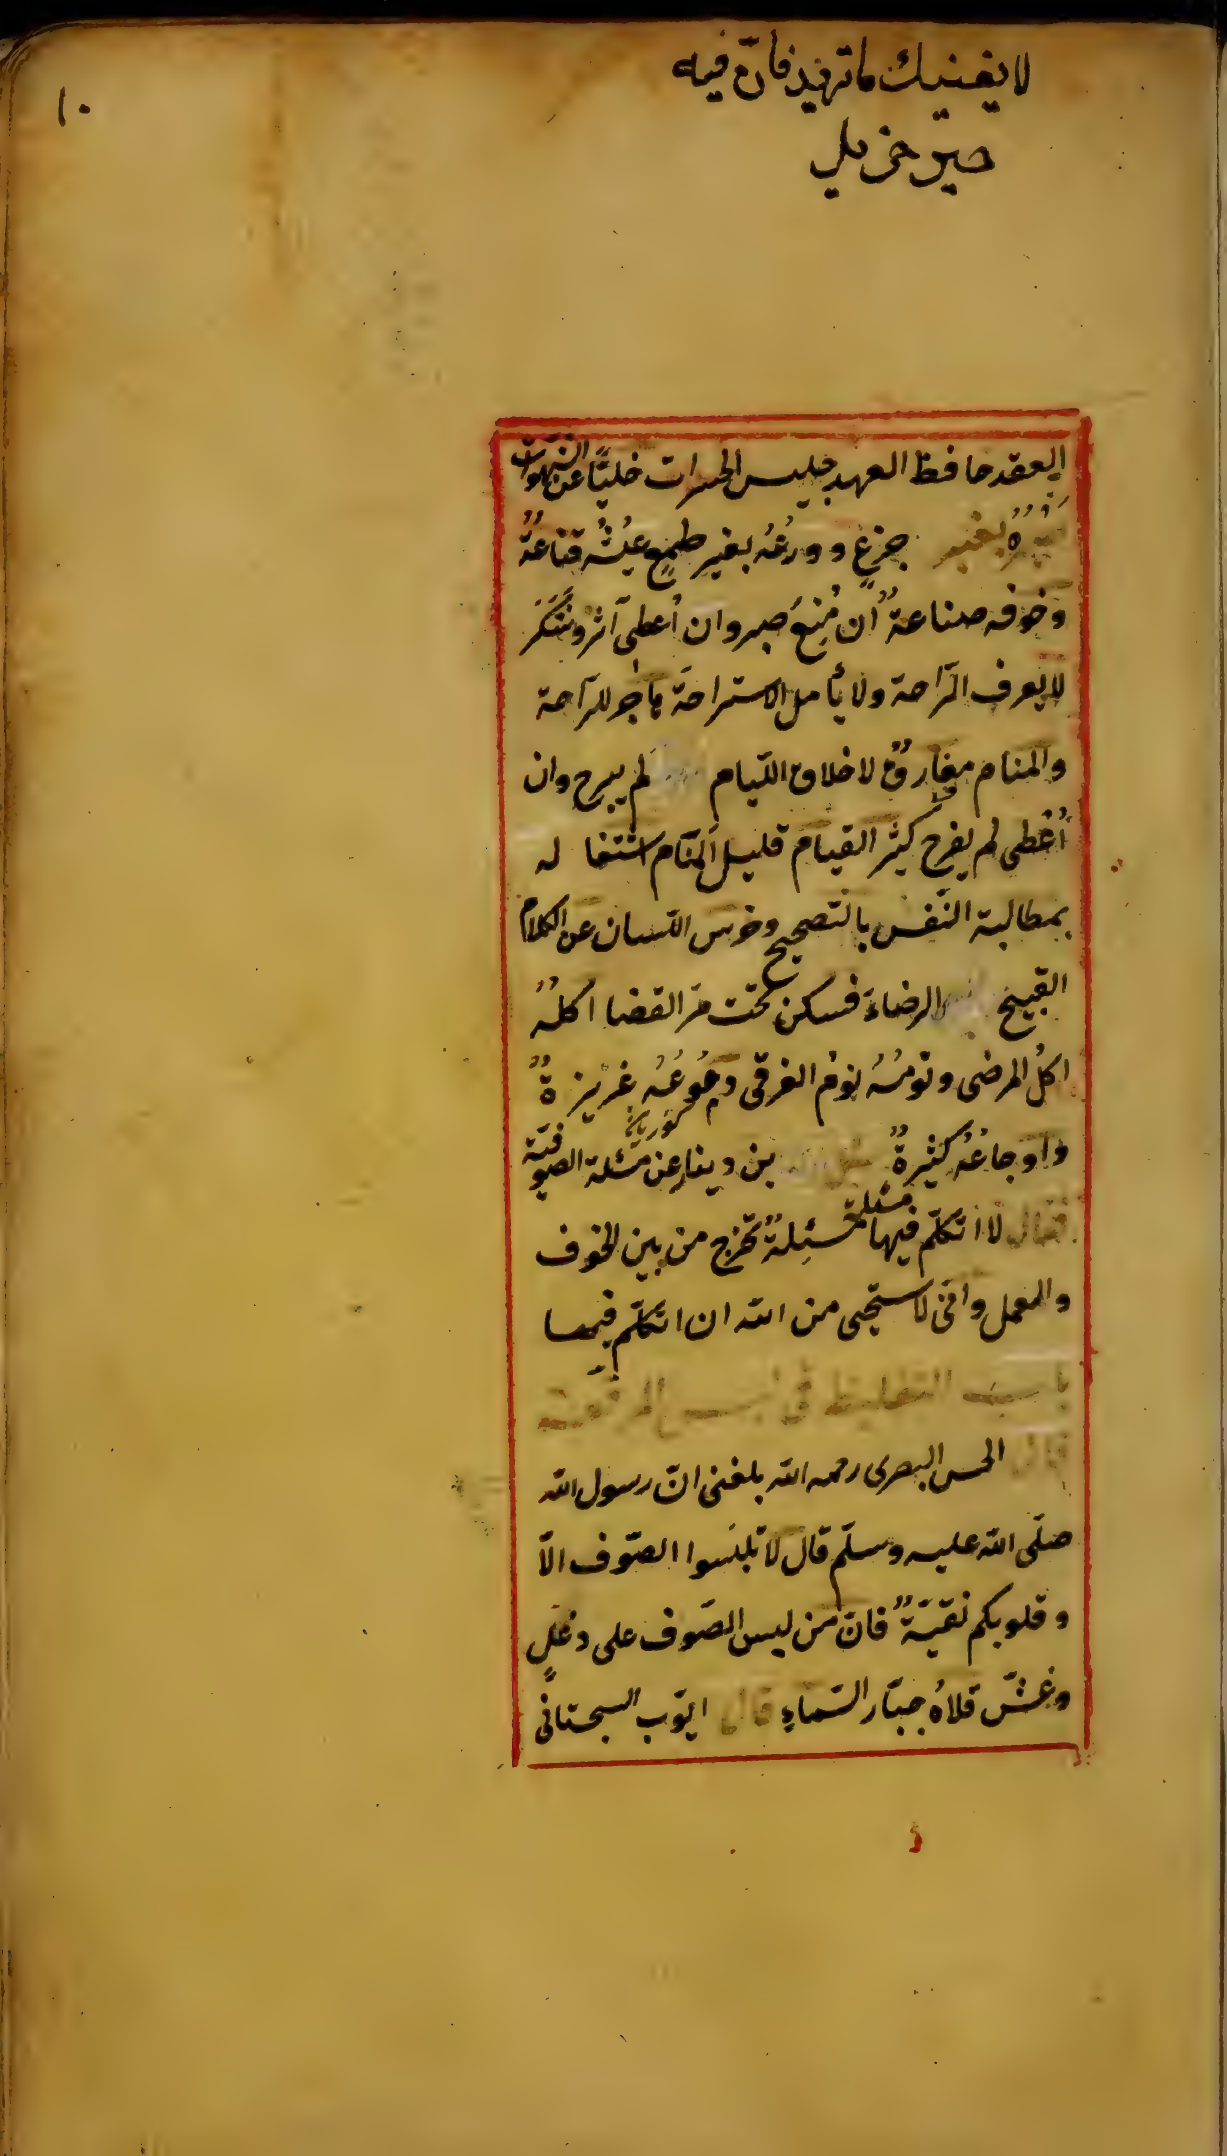 لا يغنيك ما تزهد فان فيه
١٠
العقد حافظ العهد جليس الحسرات خليّا عن الشهوات
بغير جزع وورعه بغير طمع عيشه قناعة
وخوفه صناعة ان مُنِعَ صبر وان أعطى آثر وشكر
لا يعرف الرّاحة ولا يأمل الاستراحة للرّاحة
والمنام مفارق لاخلاق اللئام لم يبرح وان
أعطى لم يفرح كثير القيام قليل المنام اشتغا له
بمطالبة النّفس بالتصحيح وخرس اللّسان عن الكلام
القبيح الرضاء فسكن تحت مرّ القضا اكلهُ
اكل المرضى ونومُهُ نوم الغرقى وجوعُهُ غريزةٌ
واوجاعُهُ كثيرةٌ بن دينار عن مسئلة الصوفيّة
فقال لا اتكلّم فيها مسئلة مسئلةٌ تخرج من بين الخوف
والعمل وانّى لاستحيى من الله ان اتكلّم فيها
باب التغليظ فى لبس المرقعة
قال الحسن البصرى رحمه الله بلغنى انّ رسول الله
صلّى الله عليه وسلّم قال لا تلبسوا الصّوف الّا
وقلوبكم نقيّةٌ فانّ من لبس الصّوف على دغلٍ
وغشّ قلاهُ جبّار السّماءِ قال ايّوب السجستانى